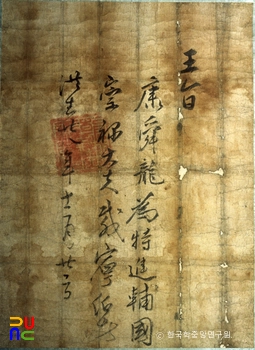 王旨
康舜龍爲特進輔國
崇祿大夫載寧伯者
洪武廿八年十二月廿二日
한국학중앙연구원